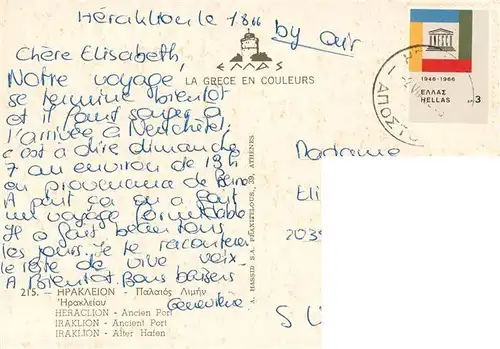 Héraklion le 1.8.66
by air
Chère Elisabeth,
Notre voyage
se termine bientôt
et il faut songer à
l'arrivée à Neuchâtel,
c'est à dire dimanche
7 au environ de 19h
en provenance de
A part ça on a fait
un voyage formidable
Il a fait beau tous
les jours. Je te raconterai
le reste de vive voix.
A Bientôt. Bons baisers
Geneviève
ΕΛΛΑΣ
LA GRECE EN COULEURS
1946-1966
ΕΛΛΑΣ
HELLAS
3
Madame
Eli
2035
SU
A. HASSID S.A. 39, ATHENES
215. - ΗΡΑΚΛΕΙΟΝ - Παλαιός Λιμήν
Ἡρακλείου
HERACLION - Ancien Port
IRAKLION - Ancient Port
IRAKLION - Alter Hafen